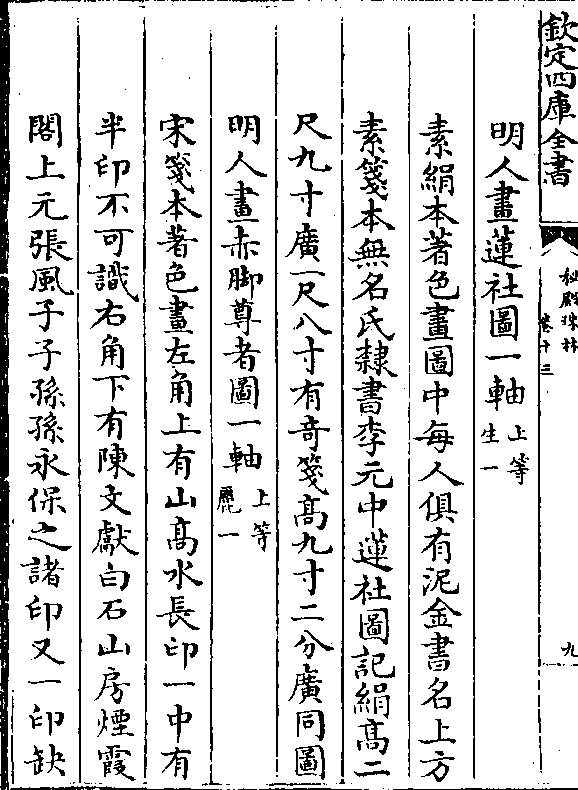 欽定四庫全書
秘殿珠林
卷十三
九
明人畫蓮社圖一軸上等生一
素絹本著色畫圖中每人俱有泥金書名上方
素箋本無名氏隸書李元中蓮社圖記絹髙二
尺九寸廣一尺八寸有竒箋髙九寸二分廣同圖
明人畫赤脚尊者圖一軸上等麗一
宋箋本著色畫左角上有山髙水長印一中有
半印不可識右角下有陳文獻白石山房煙霞
閣上元張風子子孫孫永保之諸印又一印缺